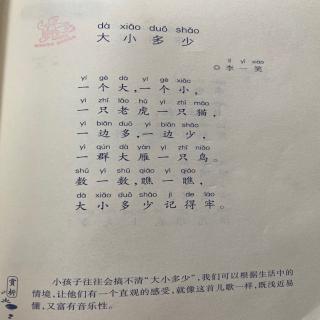 dà xiǎo duō shǎo
大小多少
lǐ yí xiào
◎李一笑
yí gè dà yí gè xiǎo
一个大，一个小，
yì zhī lǎo hǔ yì zhī māo
一只老虎一只猫，
yì biān duō yì biān shǎo
一边多，一边少，
yì qún dà yàn yì zhī niǎo
一群大雁一只鸟。
shǔ yì shǔ qiáo yì qiáo
数一数，瞧一瞧，
dà xiǎo duō shǎo jì de láo
大小多少记得牢。
赏析
小孩子往往会搞不清“大小多少”，我们可以根据生活中的
情境，让他们有一个直观的感受，就像这首儿歌一样，既浅近易
懂，又富有音乐性。